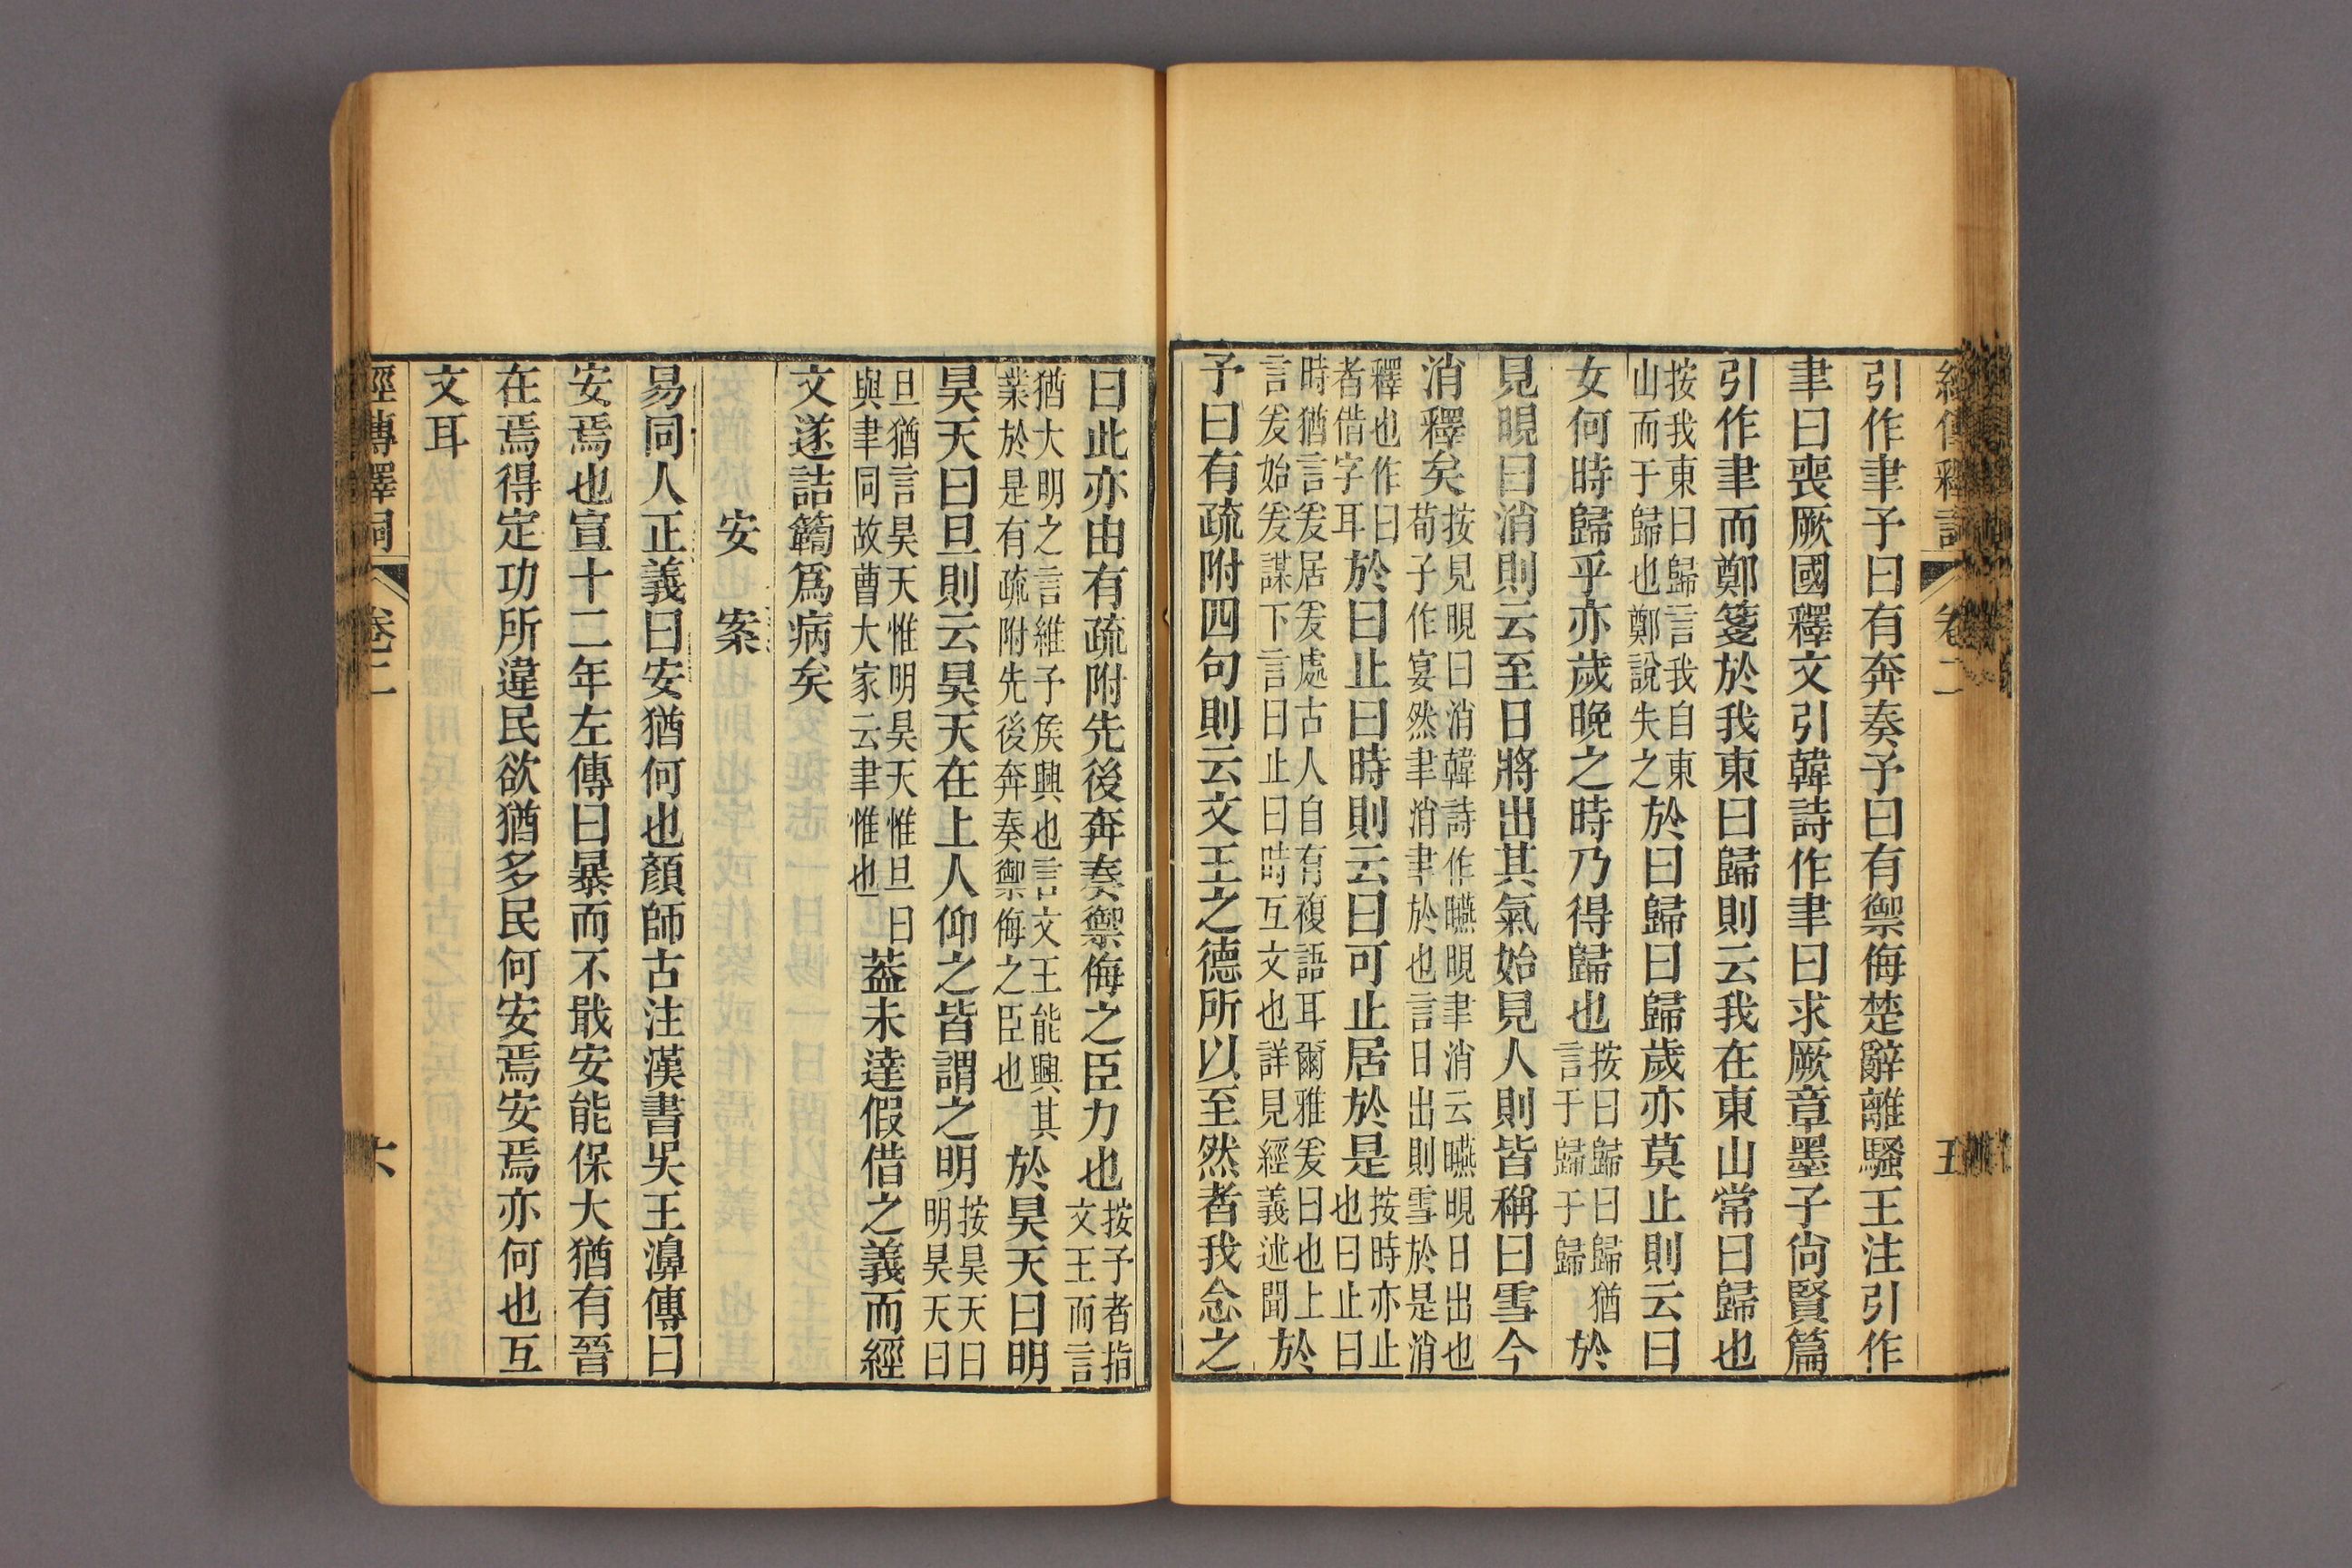 經傳釋詞 卷二 五
引作聿予曰有奔奏予曰有禦侮楚辭離騷王注引作
聿曰喪厥國釋文引韓詩作聿曰求厥章墨子尙賢篇
引作聿而鄭箋於我東曰歸則云我在東山常曰歸也
按我東曰歸言我自東
山而于歸也鄭說失之
於曰歸曰歸歲亦莫止則云曰
女何時歸乎亦歲晚之時乃得歸也
按曰歸曰歸猶
言于歸于歸
於
見晛曰消則云至日將出其氣始見人則皆稱曰雪今
消釋矣
按見晛曰消韓詩作曣晛聿消云曣晛日出也
荀子作宴然聿消聿於也言日出則雪於是消
釋也作曰
者借字耳
於曰止曰時則云曰可止居於是
按時亦止
也曰止曰
時猶言爰居爰處古人自有複語耳爾雅爰曰也上
言爰始爰謀下言曰止曰時互文也詳見經義述聞
於
予曰有疏附四句則云文王之德所以至然者我念之
曰此亦由有疏附先後奔奏禦侮之臣力也
按予者指
文王而言
猶大明之言維予矦興也言文王能興其
業於是有疏附先後奔奏禦侮之臣也
於昊天曰明
昊天曰旦則云昊天在上人仰之皆謂之明
按昊天曰
明昊天曰
旦猶言昊天惟明昊天惟旦曰
與聿同故曹大家云聿惟也
蓋未達假借之義而經
文遂詰𥷚爲病矣
安 案
易同人正義曰安猶何也顏師古注漢書吳王濞傳曰
安焉也宣十二年左傳曰暴而不戢安能保大猶有晉
在焉得定功所違民欲猶多民何安焉安焉亦何也互
文耳
經傳釋詞 卷二 六